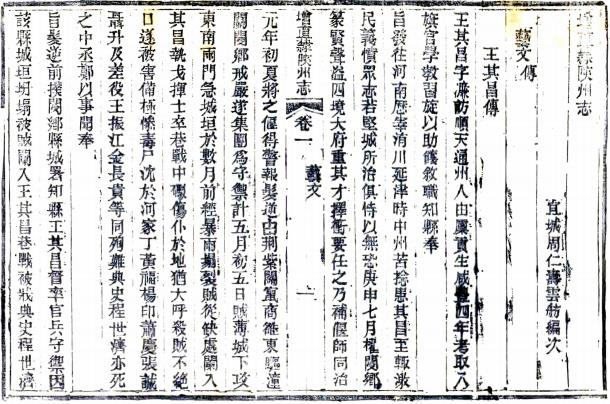 直隸陝州志
宜城周仁壽雲舫編次
藝文 傳
王其昌傳
王其昌字濂訪順天通州人由廩貢生咸豐四年考取八
旗官學教習旋以助餉敘職知縣奉
旨發往河南歷宰洧川延津時中州苦捻患其昌至輒激
民義憤眾志若堅城所治俱恃以無恐庚申七月權閿鄉
篆賢聲溢四境大府重其才擇衝要任之乃補偃師同治
增直隸陝州志 卷一 藝文 一
元年初夏將之偃得警報髮逆由荊紫關竄商雒東驅遠
關閿鄉戒嚴遂集團為守禦計五月初五日賊薄城下攻
東南兩門急城垣於數月前經暴雨塌裂賊從缺處闌入
其昌執戈揮士卒巷戰中礮傷仆於地猶大呼殺賊不絕
口遂被害備極慘毒尸沈於河家丁黃龍楊印蕭慶張誠
聶升及差役王振江金長貴等同殉難典史程世濟亦死
之中丞鄭以事聞奉
旨髮逆前撲閿鄉縣城署知縣王其昌督率官兵守禦因
該縣城垣坍塌被賊闖入王其昌巷戰被戕典史程世濟